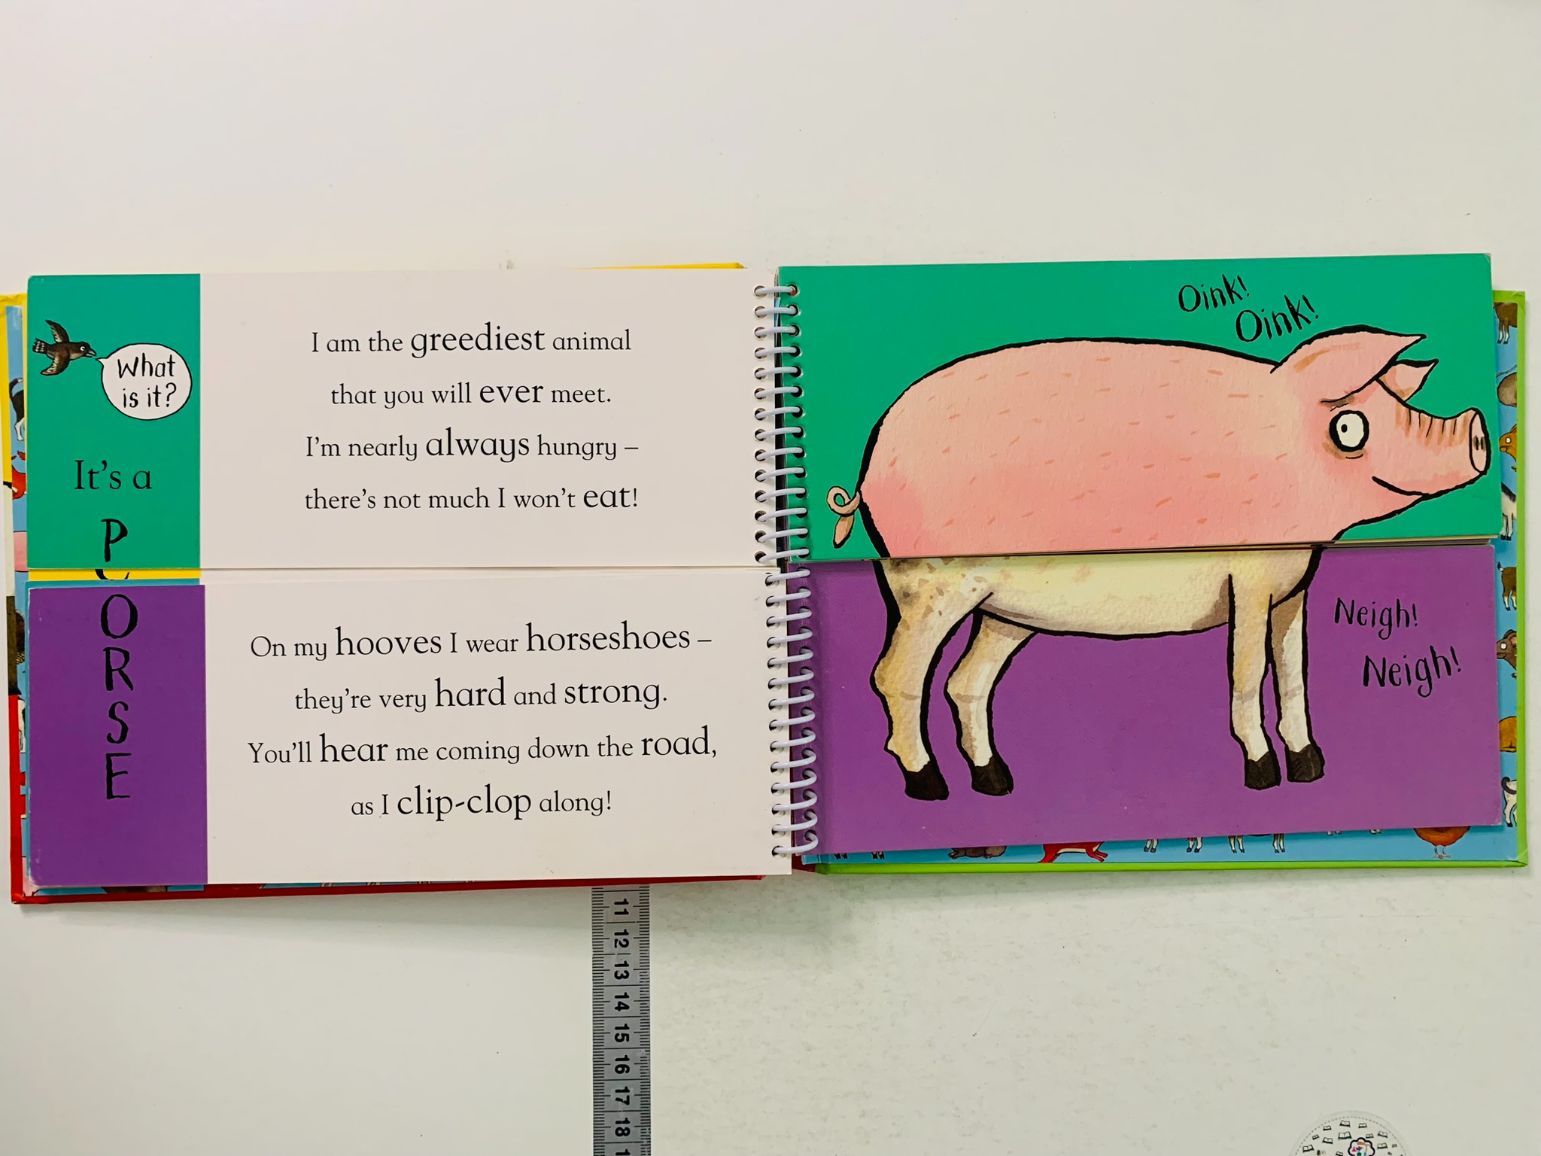 What
is it?
It's a
P
ORSE
I am the greediest animal
that you will ever meet.
I'm nearly always hungry –
there's not much I won't eat!
On my hooves I wear horseshoes –
they're very hard and strong.
You'll hear me coming down the road,
as I clip-clop along!
Oink!
Oink!
Neigh!
Neigh!
11
12
13
14
15
16
17
18